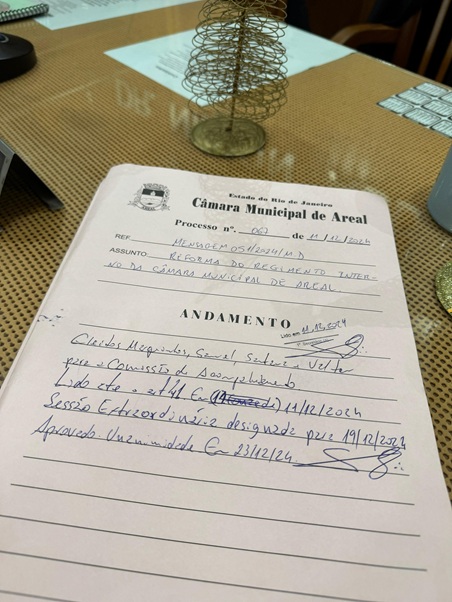 Estado do Rio de Janeiro
Câmara Municipal de Areal
Processo nº. 067 de 11/12/2024
REF. MENSAGEM 051/2024/MD
ASSUNTO REFORMA DO REGIMENTO INTER-
NO DA CÂMARA MUNICIPAL DE AREAL.
ANDAMENTO
Lido em 11.12.2024
Eleitos Samuel, e
para a Comissão de Acompanhamento
Lido até o art 41 Em 11/12/2024
Sessão Extraordinária designada para 19/12/2024
Aprovado Unanimidade Em 23/12/24.